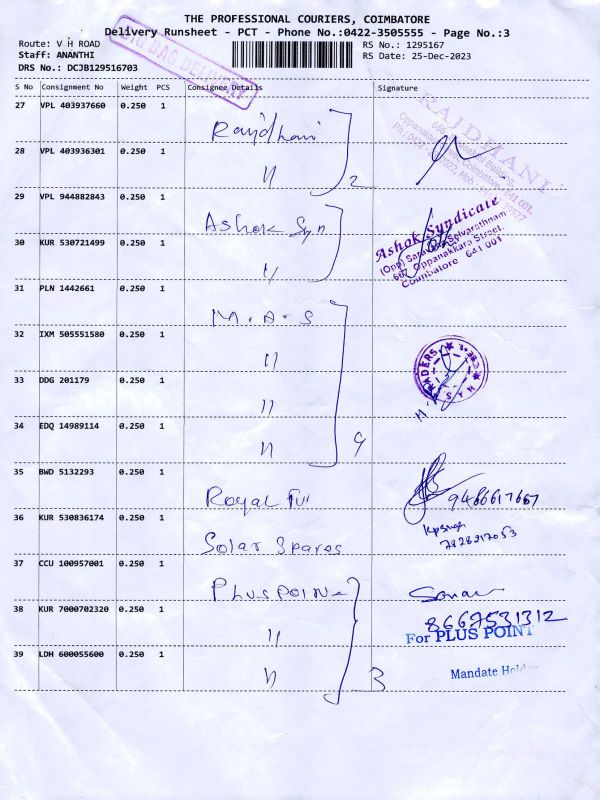 THE PROFESSIONAL COURIERS, COIMBATORE
Delivery Runsheet - PCT - Phone No.:0422-3505555 - Page No.:3
Route: V H ROAD
Staff: ANANTHI
DRS No.: DCJB129516703
RS No.: 1295167
RS Date: 25-Dec-2023
BIG BAG DELIVERY
S No Consignment No Weight PCS Consignee Details Signature
27 VPL 403937660 0.250 1 Rajdhani
RAJDHANI
28 VPL 403936301 0.250 1 〃 2
29 VPL 944882843 0.250 1 Ashok Syn
Ashok Syndicate
667, Oppanakkara Street,
Coimbatore 641 001
30 KUR 530721499 0.250 1 〃
31 PLN 1442661 0.250 1 M.A.S
32 IXM 505551580 0.250 1 〃
33 DDG 201179 0.250 1 〃
34 EDQ 14989114 0.250 1 〃
35 BWD 5132293 0.250 1 Royal
36 KUR 530836174 0.250 1 Solar Spares
37 CCU 100957001 0.250 1 Plus Point
8667531312
38 KUR 7000702320 0.250 1 〃
For PLUS POINT
39 LDH 600055600 0.250 1 〃 3
Mandate